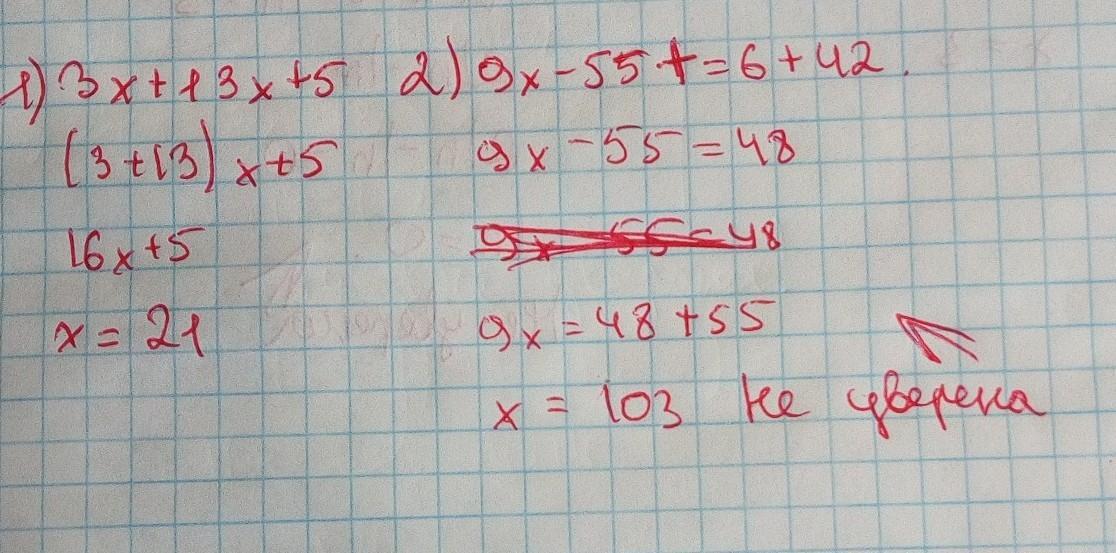 1) 3x+13x+5
(3+13)x+5
16x+5
x=21
2) 9x-55+=6+42.
9x-55=48
9x-55=48
9x=48+55
x=103 не уверена